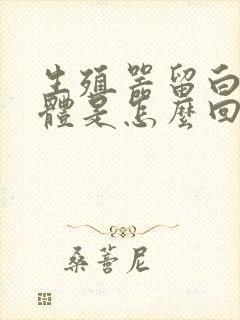 生殖器留白
體是怎麼回
桑蓍尼